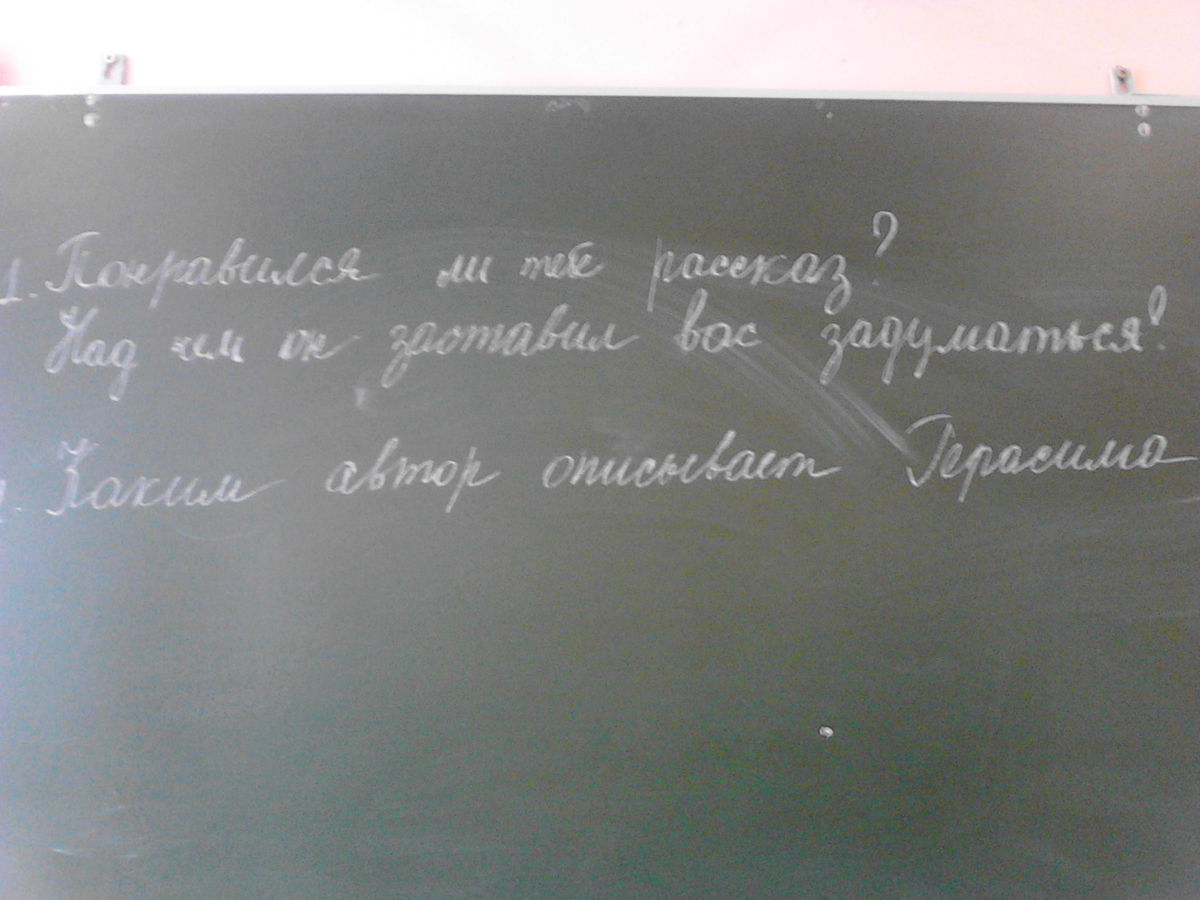 1. Понравился ли тебе рассказ?
Над чем он заставил вас задуматься?
Каким автор описывает Герасима